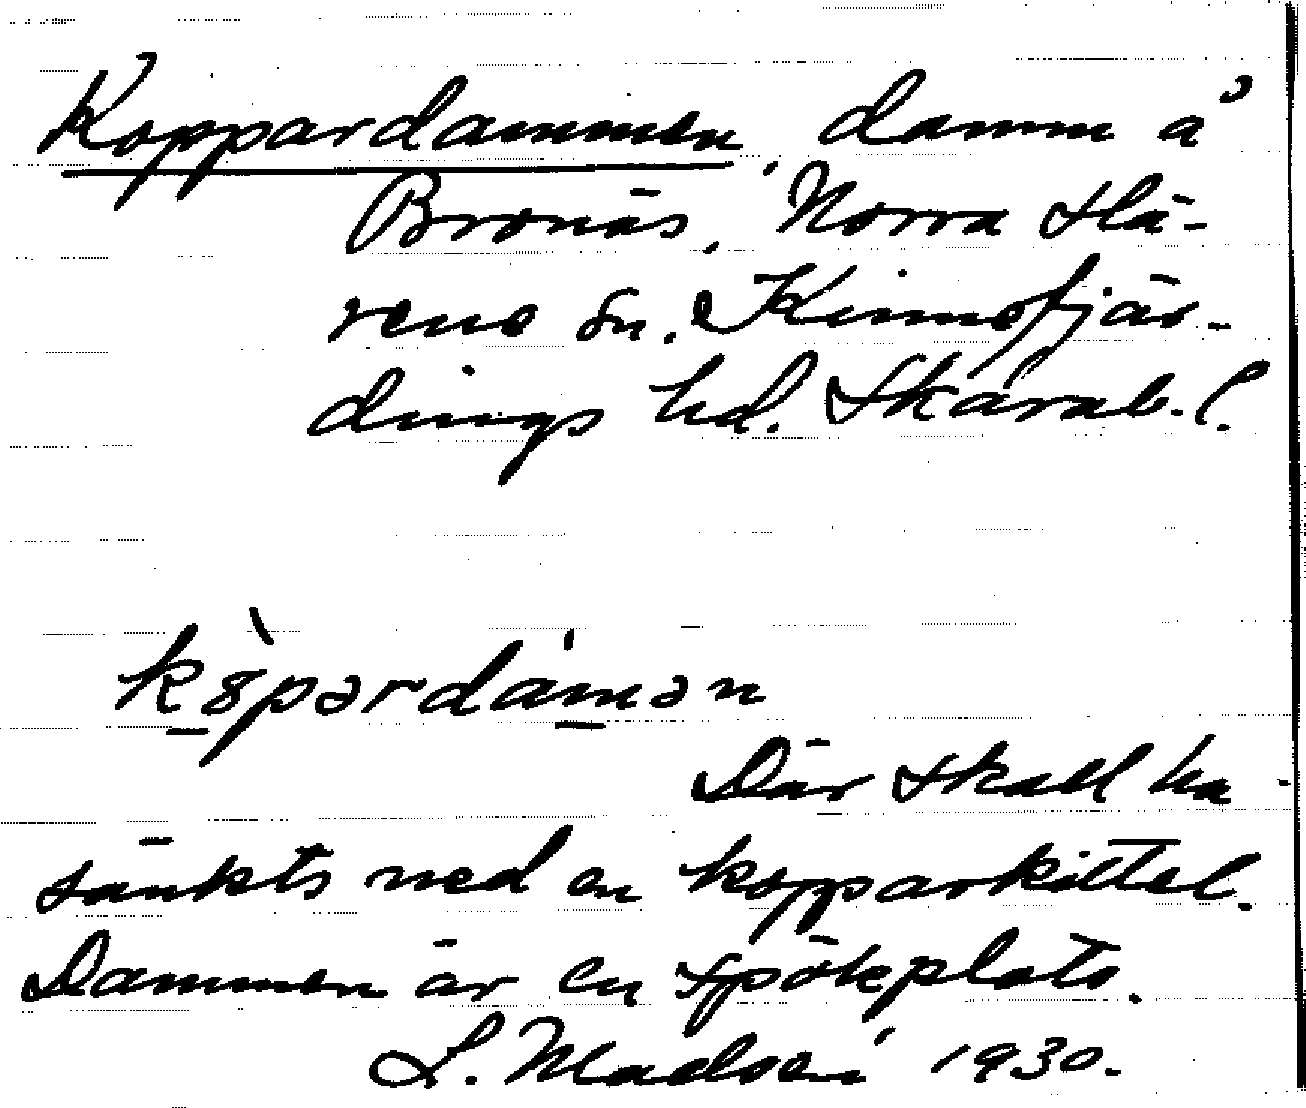 Koppardammen, damm å
Bronäs, Norra Hä-
rene sn. Kinnefjär-
dings hd. Skarab. l.
köpərdàmən
Där skall ha
sänkts ned en kopparkittel.
Dammen är en spökplats.
L. Madsén 1930.